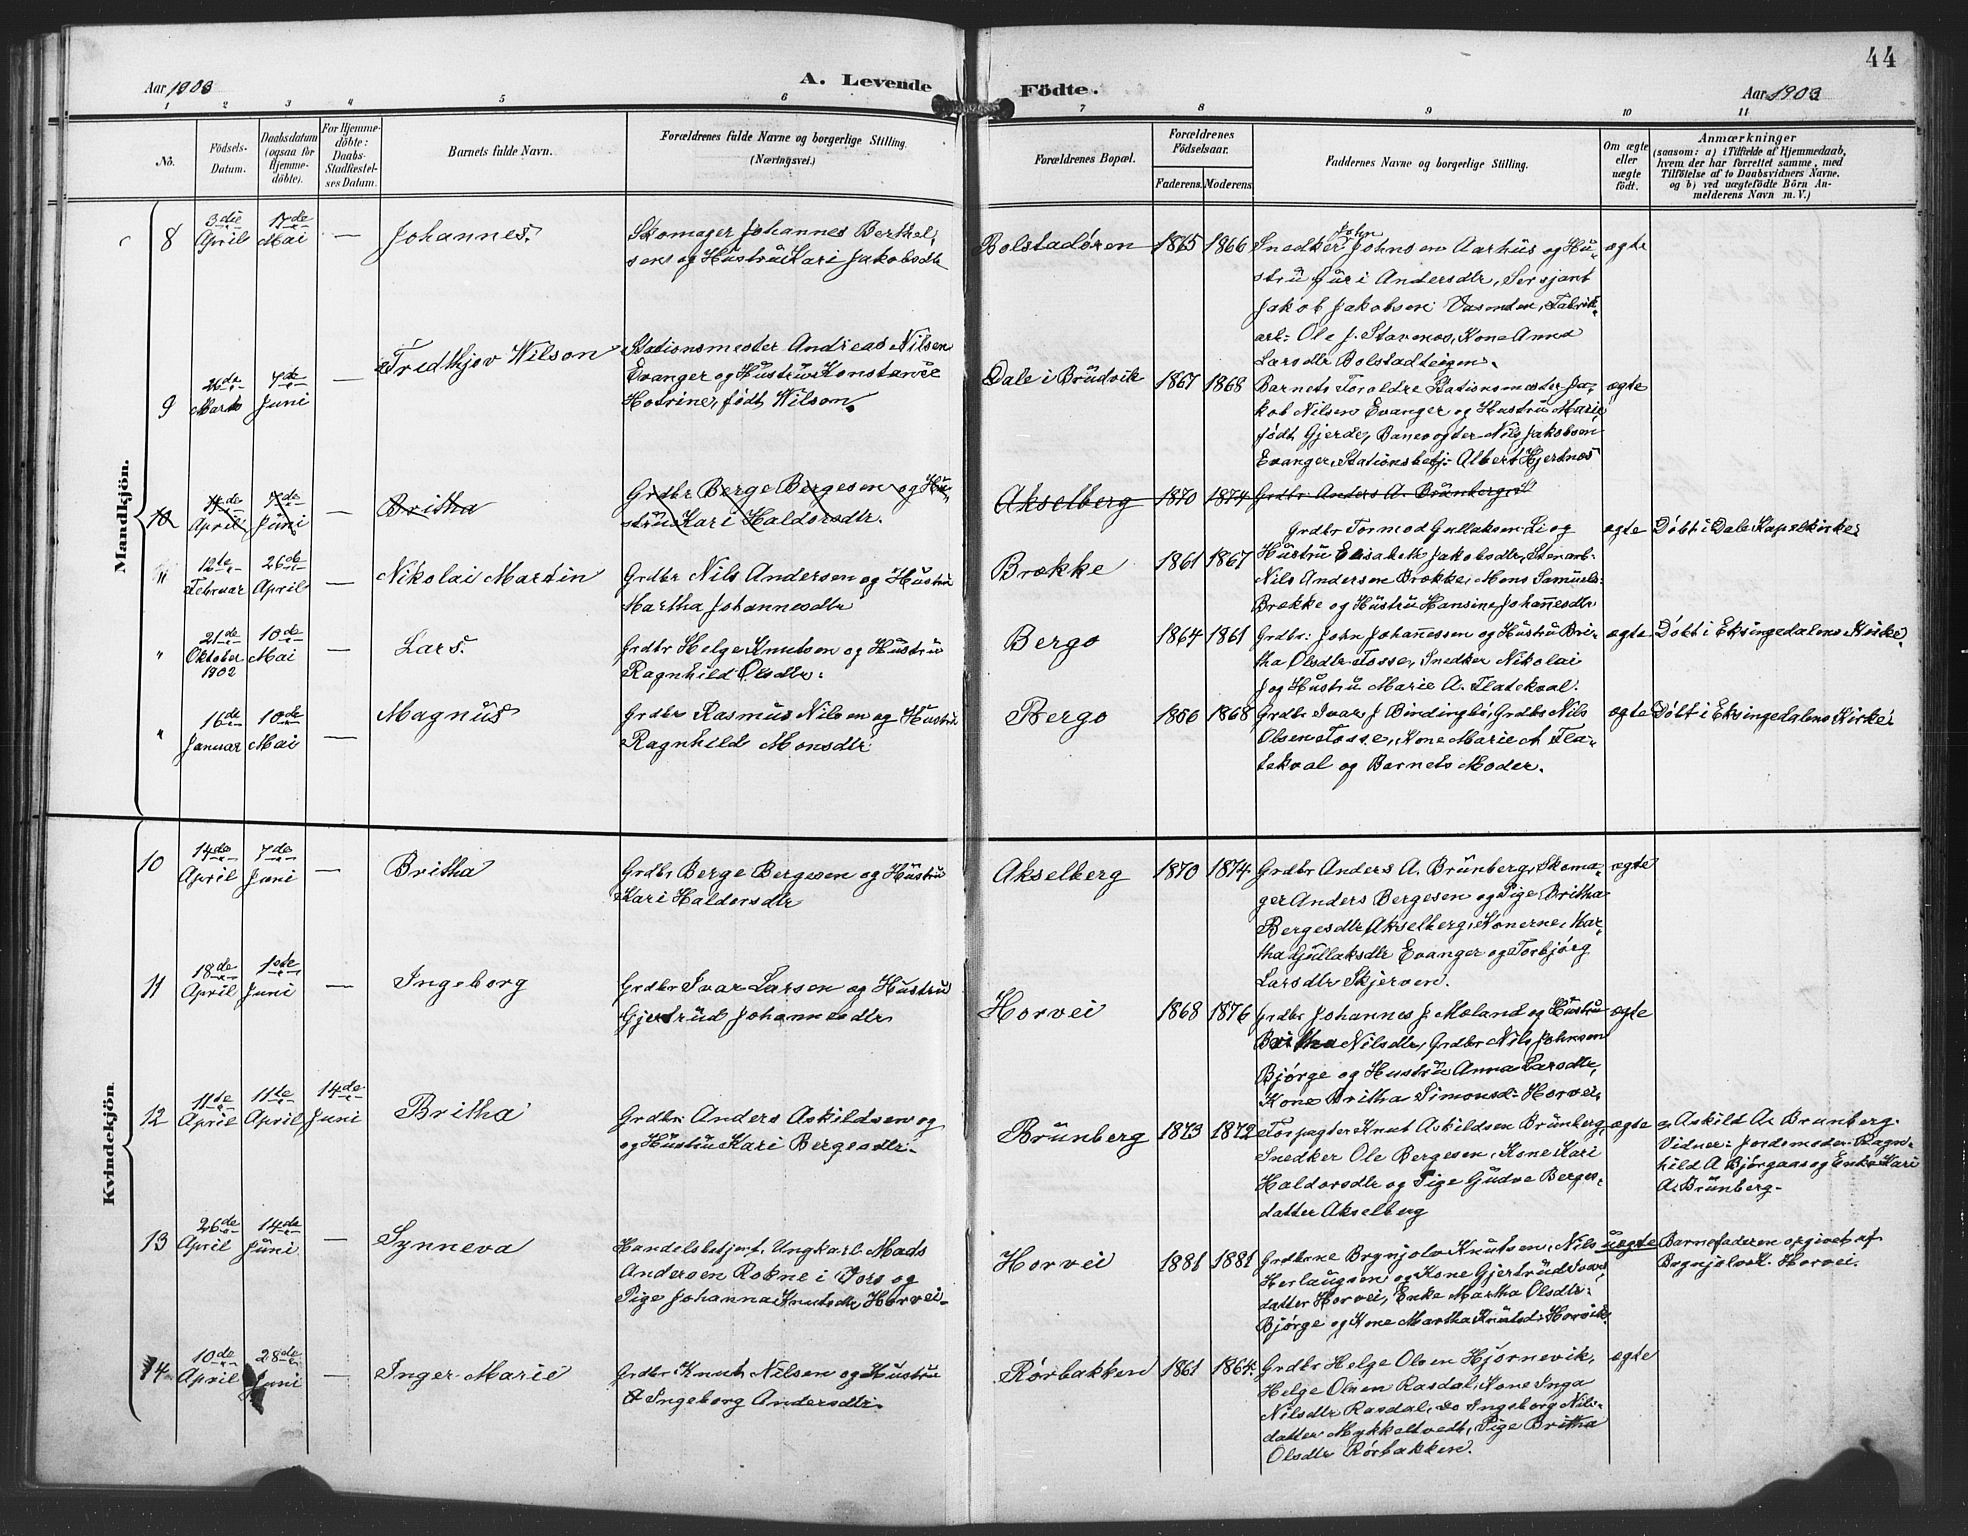 44
Aar 1903
A. Levende
Födte.
Aar 1903
1 2 3 4 5 6 7 8 9 10 11
No.
Födsels-
Datum.
Daabsdatum
(ogsaa for
Hjemme-
döbte).
For Hjemme-
döbte:
Daabs-
Stadfæstel-
ses Datum.
Barnets fulde Navn.
Forældrenes fulde Navne og borgerlige Stilling.
(Næringsvei.)
Forældrenes Bopæl.
Forældrenes
Födselsaar.
Faderens. Moderens.
Faddernes Navne og borgerlige Stilling.
Om ægte
eller
uægte
födt.
Anmærkninger
(saasom: a) i Tilfælde af Hjemmedaab,
hvem der har forrettet samme, med
Tilföielse af to Daabsvidners Navne.
og b) ved uægtefödte Börn An-
melderens Navn m. V.)
Mandkjön.
8
3die
April
17de
Mai
—
Johannes.
Skomager Johannes Berthel,
sen og Hustru Kari Jakobsdtr
Bolstadøren
1865
1866
John
Snedker Johnsen Aarhus og Hu-
stru Guri Andersdtr, Sersjant
Jakob Jakobsen Vasenden, Fabrik-
arb: Ole J. Stavenes, Kone Anna
Larsdtr Bolstadteigen.
ægte
9
26de
Marts
7de
Juni
—
Fredthjov Wilson
Stationsmester Andreas Nilsen
Evanger og Hustru Konstance
Hotrine, født Wilson.
Dale i Brudvik
1867
1868
Barnets Foreldre Stationsmester Ja-
kob Nilsen Evanger og Hustru Marie
født Gjerde, Banevogter Nils Jakobsen
Evanger, Stationsbetj: Albert Hjertnes
ægte
10
14de
April
7de
Juni
—
Britha
Grdbr Berge Bergesen og Hu-
stru Kari Haldorsdtr.
Akselberg
1870
1874
Grdbr Anders A. Brunberg,
"
12te
Februar
26de
April
—
Nikolai Martin
Grdbr Nils Andersen og Hustru
Martha Johannesdtr
Brække
1861
1867
Grdbr Tormod Gullaksen Li og
Hustru Elisabeth Jakobsdtr, Stenarb-
Nils Andersen Brække, Mons Samuels-
Brække og Hustru Hansine Johannesdtr
ægte
Døbt i Dale Kapelkirke
"
21de
Oktober
1902
10de
Mai
—
Lars.
Grdbr Helge Knutsen og Hustru
Ragnhild Olsdtr.
Bergo
1864
1861
Grdbr: John Johannessen og Hustru Bri-
tha Olsdtr Fosse, Snedker Nikolai
J og Hustru Marie A. Flatekval.
ægte
Døbt i Eksingedalens Kirke
"
16de
Januar
10de
Mai
—
Magnus
Grdbr Rasmus Nilsen og Hustru
Ragnhild Monsdtr
Bergo
1866
1868
Grdbr Ivar J Birdingbø, Grdbr Nils
Olsen Fosse, Kone Marie A Fla-
tekval og Barnets Moder.
ægte
Døbt i Eksingedalens Kirke
Kvindekjön.
10
14de
April
7de
Juni
—
Britha
Grdbr Berge Bergesen og Hustru
Kari Haldorsdtr
Akselberg
1870
1874
Grdbr Anders A. Brunberg, Skoma-
ger Anders Bergesen og Pige Britha
Bergesdtr Akselberg, Konerne, Mar-
tha Gullaksdtr Evanger og Torbjørg
Larsdtr Skjerven.
ægte
11
18de
April
1ste
Juni
—
Ingeborg
Grdbr Ivar Larsen og Hustru
Gjertrud Johannesdtr
Horvei
1868
1876
Grdbr Johannes J. Mæland og Hustru
Britha Nilsdtr, Grdbr Nils Johnsen
Bjørge og Hustru Anna Larsdtr,
Kone Britha Simonsd- Horvei,
ægte
12
11te
April
11te
April
14de
Juni
Britha
Grdbr: Anders Askildsen og
og Hustru Kari Bergesdtr.
Brunberg
1873
1872
Forpagter Knut Askildsen Brunberg,
Snedker Ole Bergesen, Kone Kari
Haldorsdtr og Pige Gudve Berges-
datter Akselberg
ægte
a, Askild A. Brunberg.
Vidner: Jordemoder Ragn-
hild A Bjørgaas og Enke Kari
A. Brunberg-
13
26de
April
14de
Juni
—
Synneva
Handelsbetjent, Ungkarl Mads
Andersen Rokne i Vors og
Pige Johanna Knutsdtr Horvei-
Horvei
1881
1881
Grdbrne Brynjolv Knutsen, Nils
Herlaugsen og Kone Gjertrud Ivars
datter Horvei, Enke Martha Olsdtr:
Bjørge og Kone Martha Knutsd: Horvik.
uægte
Barnefaderen opgivet af
Brynjolv K. Horvei.
14
10de
April
28de
Juni
—
Inger Marie
Grdbr Knut Nilsen og Hustru
Ingeborg Andersdtr.
Rørbakken
1861
1864
Grdbr Helge Olsen Hjørnevik,
Helge Olsen Rasdal, Kone Inga
Nilsdtr Rasdal, Do Ingeborg Nils-
datter Mykkeltvedt, Pige Britha
Olsdtr Rørbakken.
ægte